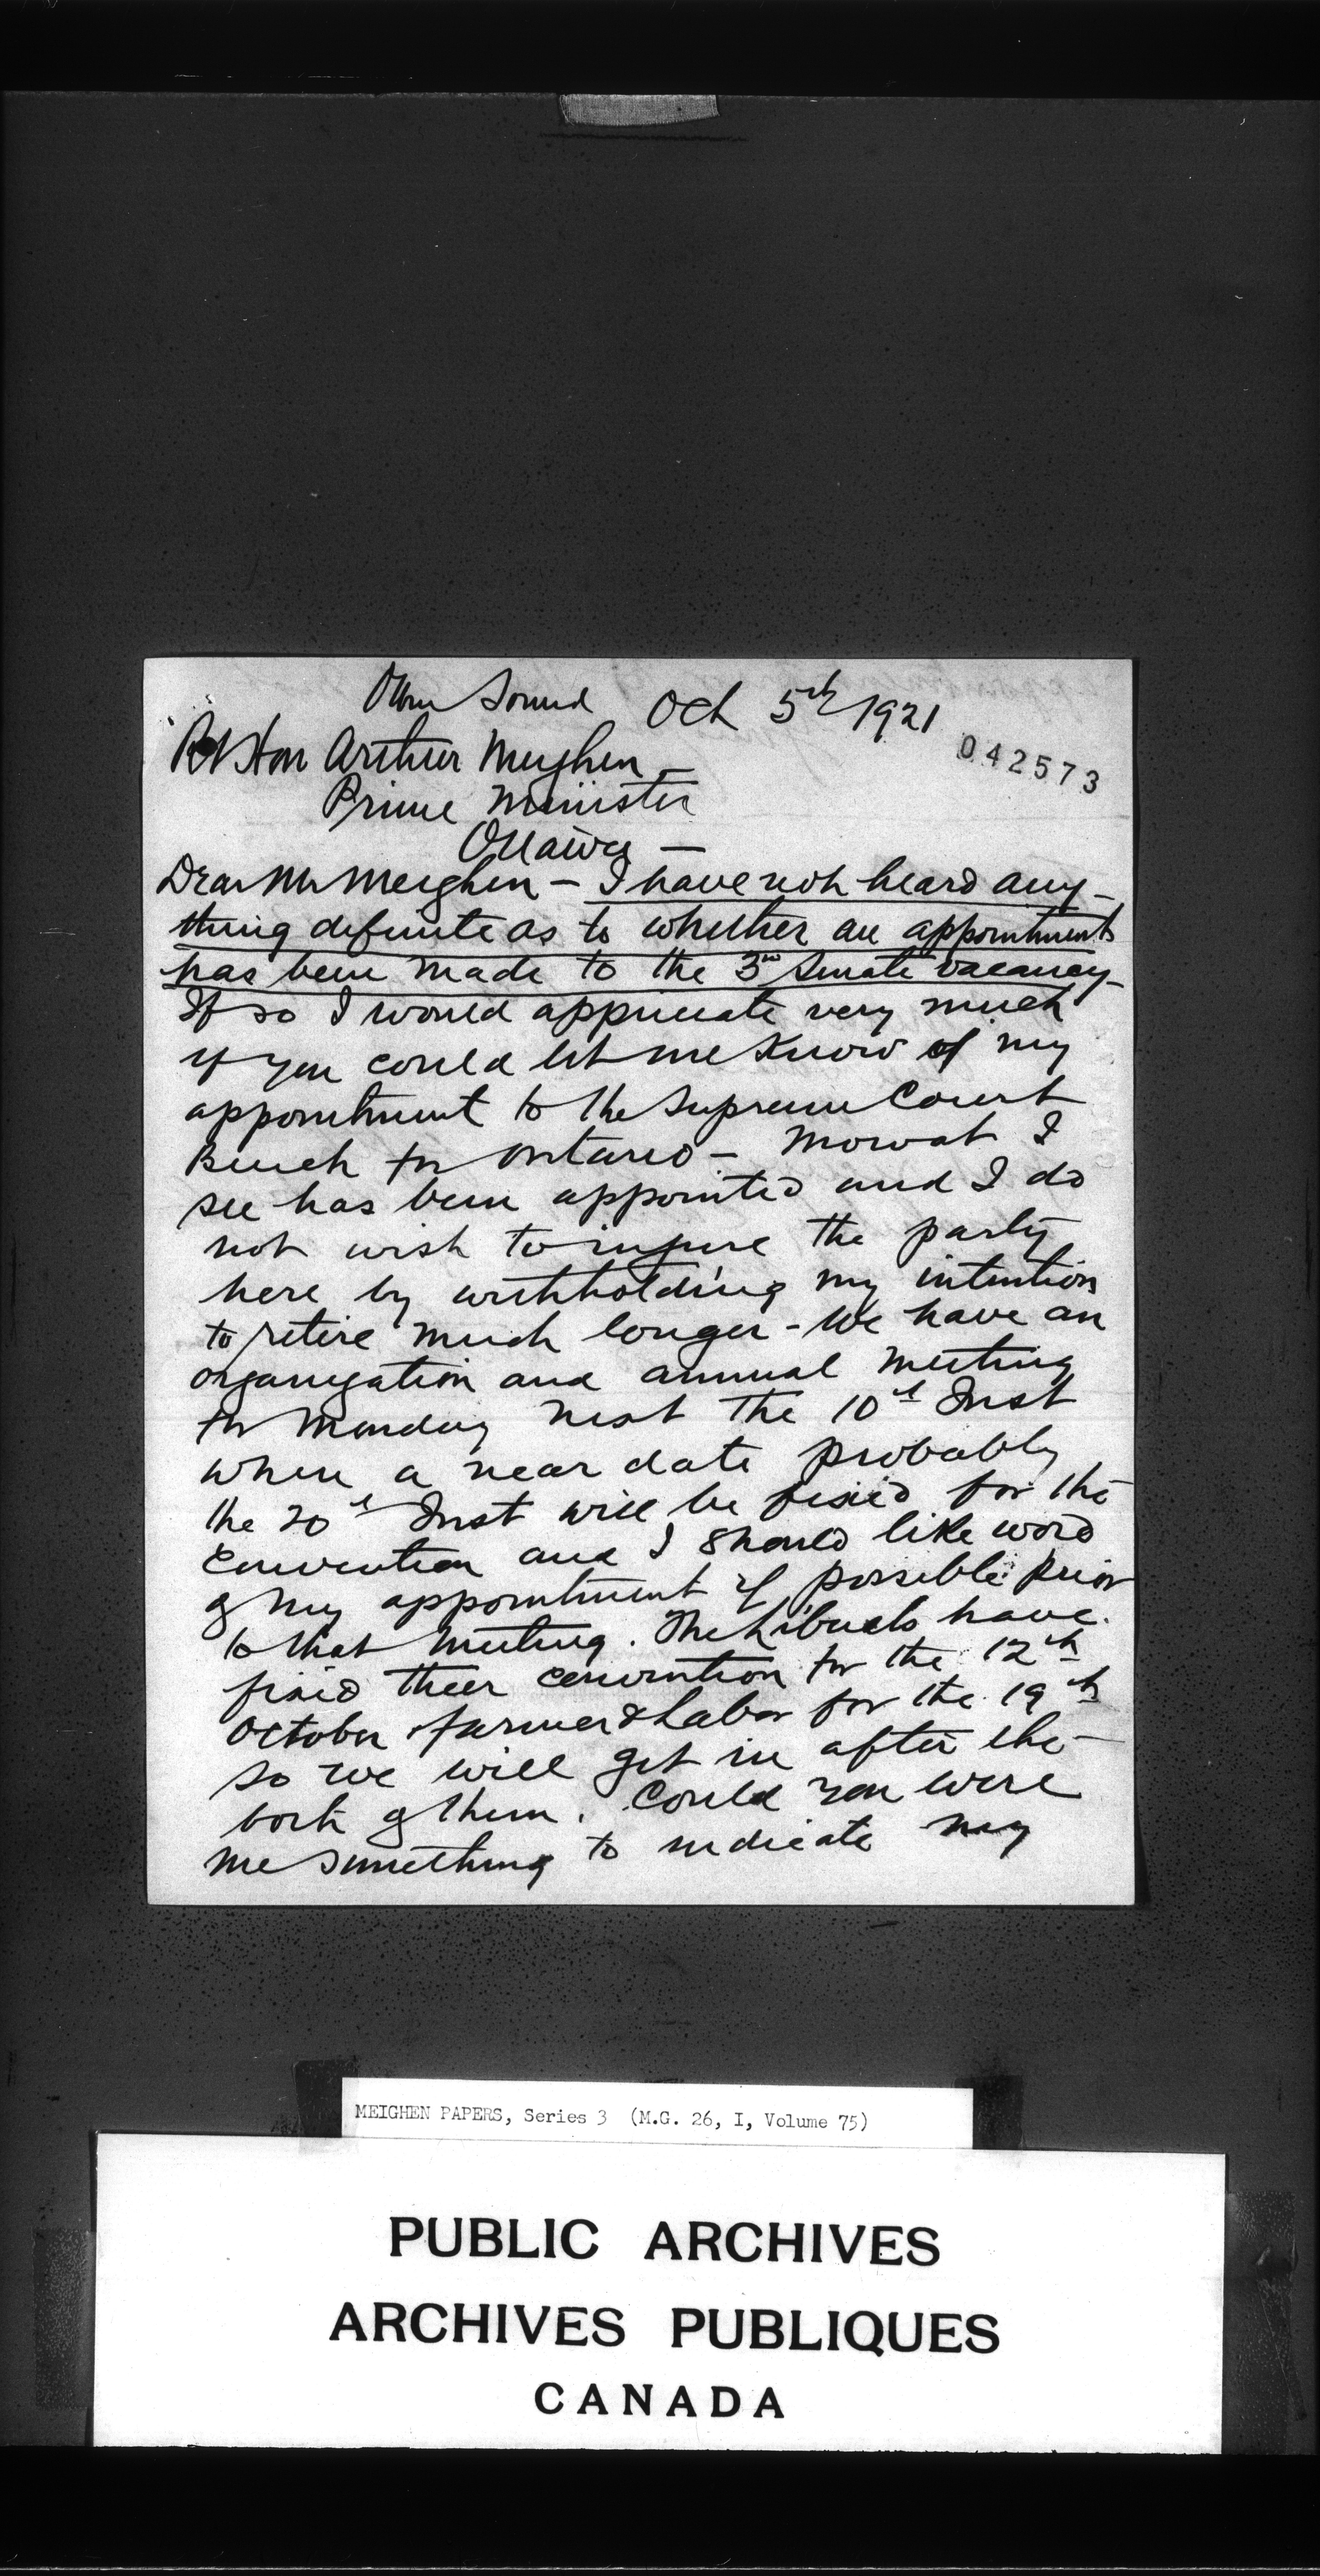 Owen Sound Oct 5th 1921
042573
Rt Hon Arthur Meighen -
Prime Minister
Ottawa -
Dear Mr Meighen - I have not heard any-
thing definite as to whether an appointment
has been made to the 3rd Senate vacancy -
If so I would appreciate very much
if you could let me know of my
appointment to the Supreme Court
Bench for Ontario - Mowat I
see has been appointed and I do
not wish to injure the party
here by withholding my intention
to retire much longer - We have an
organization and annual meeting
for Monday next the 10th Inst
when a near date probably
the 20th Inst will be fixed for the
Convention and I should like word
of my appointment if possible prior
to that meeting. The Liberals have
fixed their convention for the 12th
October farmer & Labor for the 19th
so we will get in after the
both of them. Could you wire
me something to indicate my
MEIGHEN PAPERS, Series 3 (M.G. 26, I, Volume 75)
PUBLIC ARCHIVES
ARCHIVES PUBLIQUES
CANADA